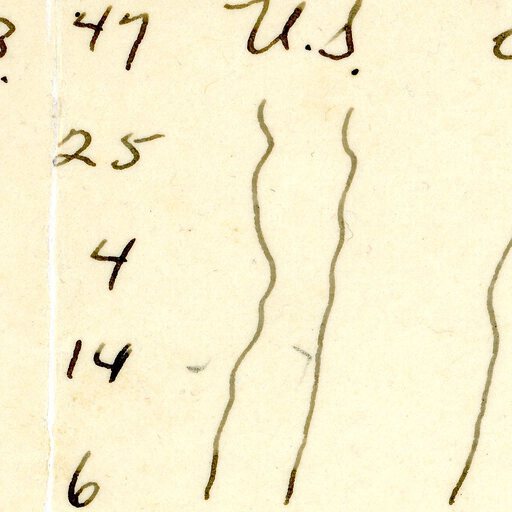 47 U.S.
25
4
14
6